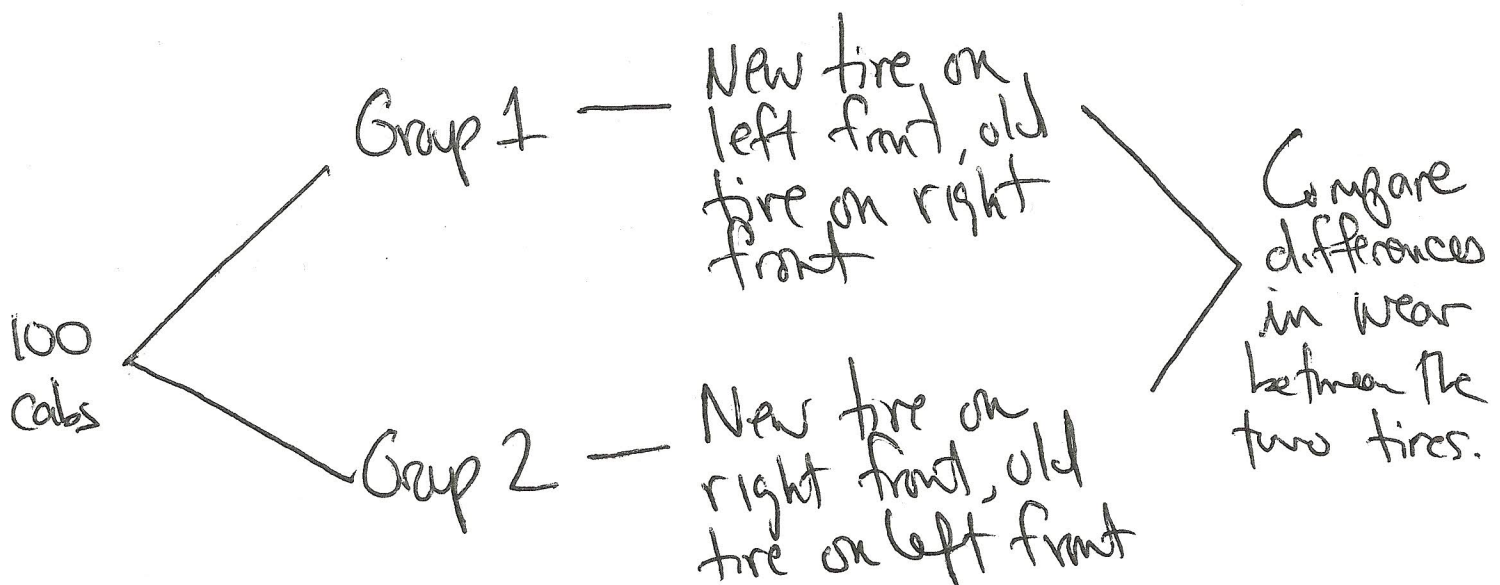 100
cabs
Group 1
New tire on
left front, old
tire on right
front
Group 2
New tire on
right front, old
tire on left front
Compare
differences
in wear
between the
two tires.